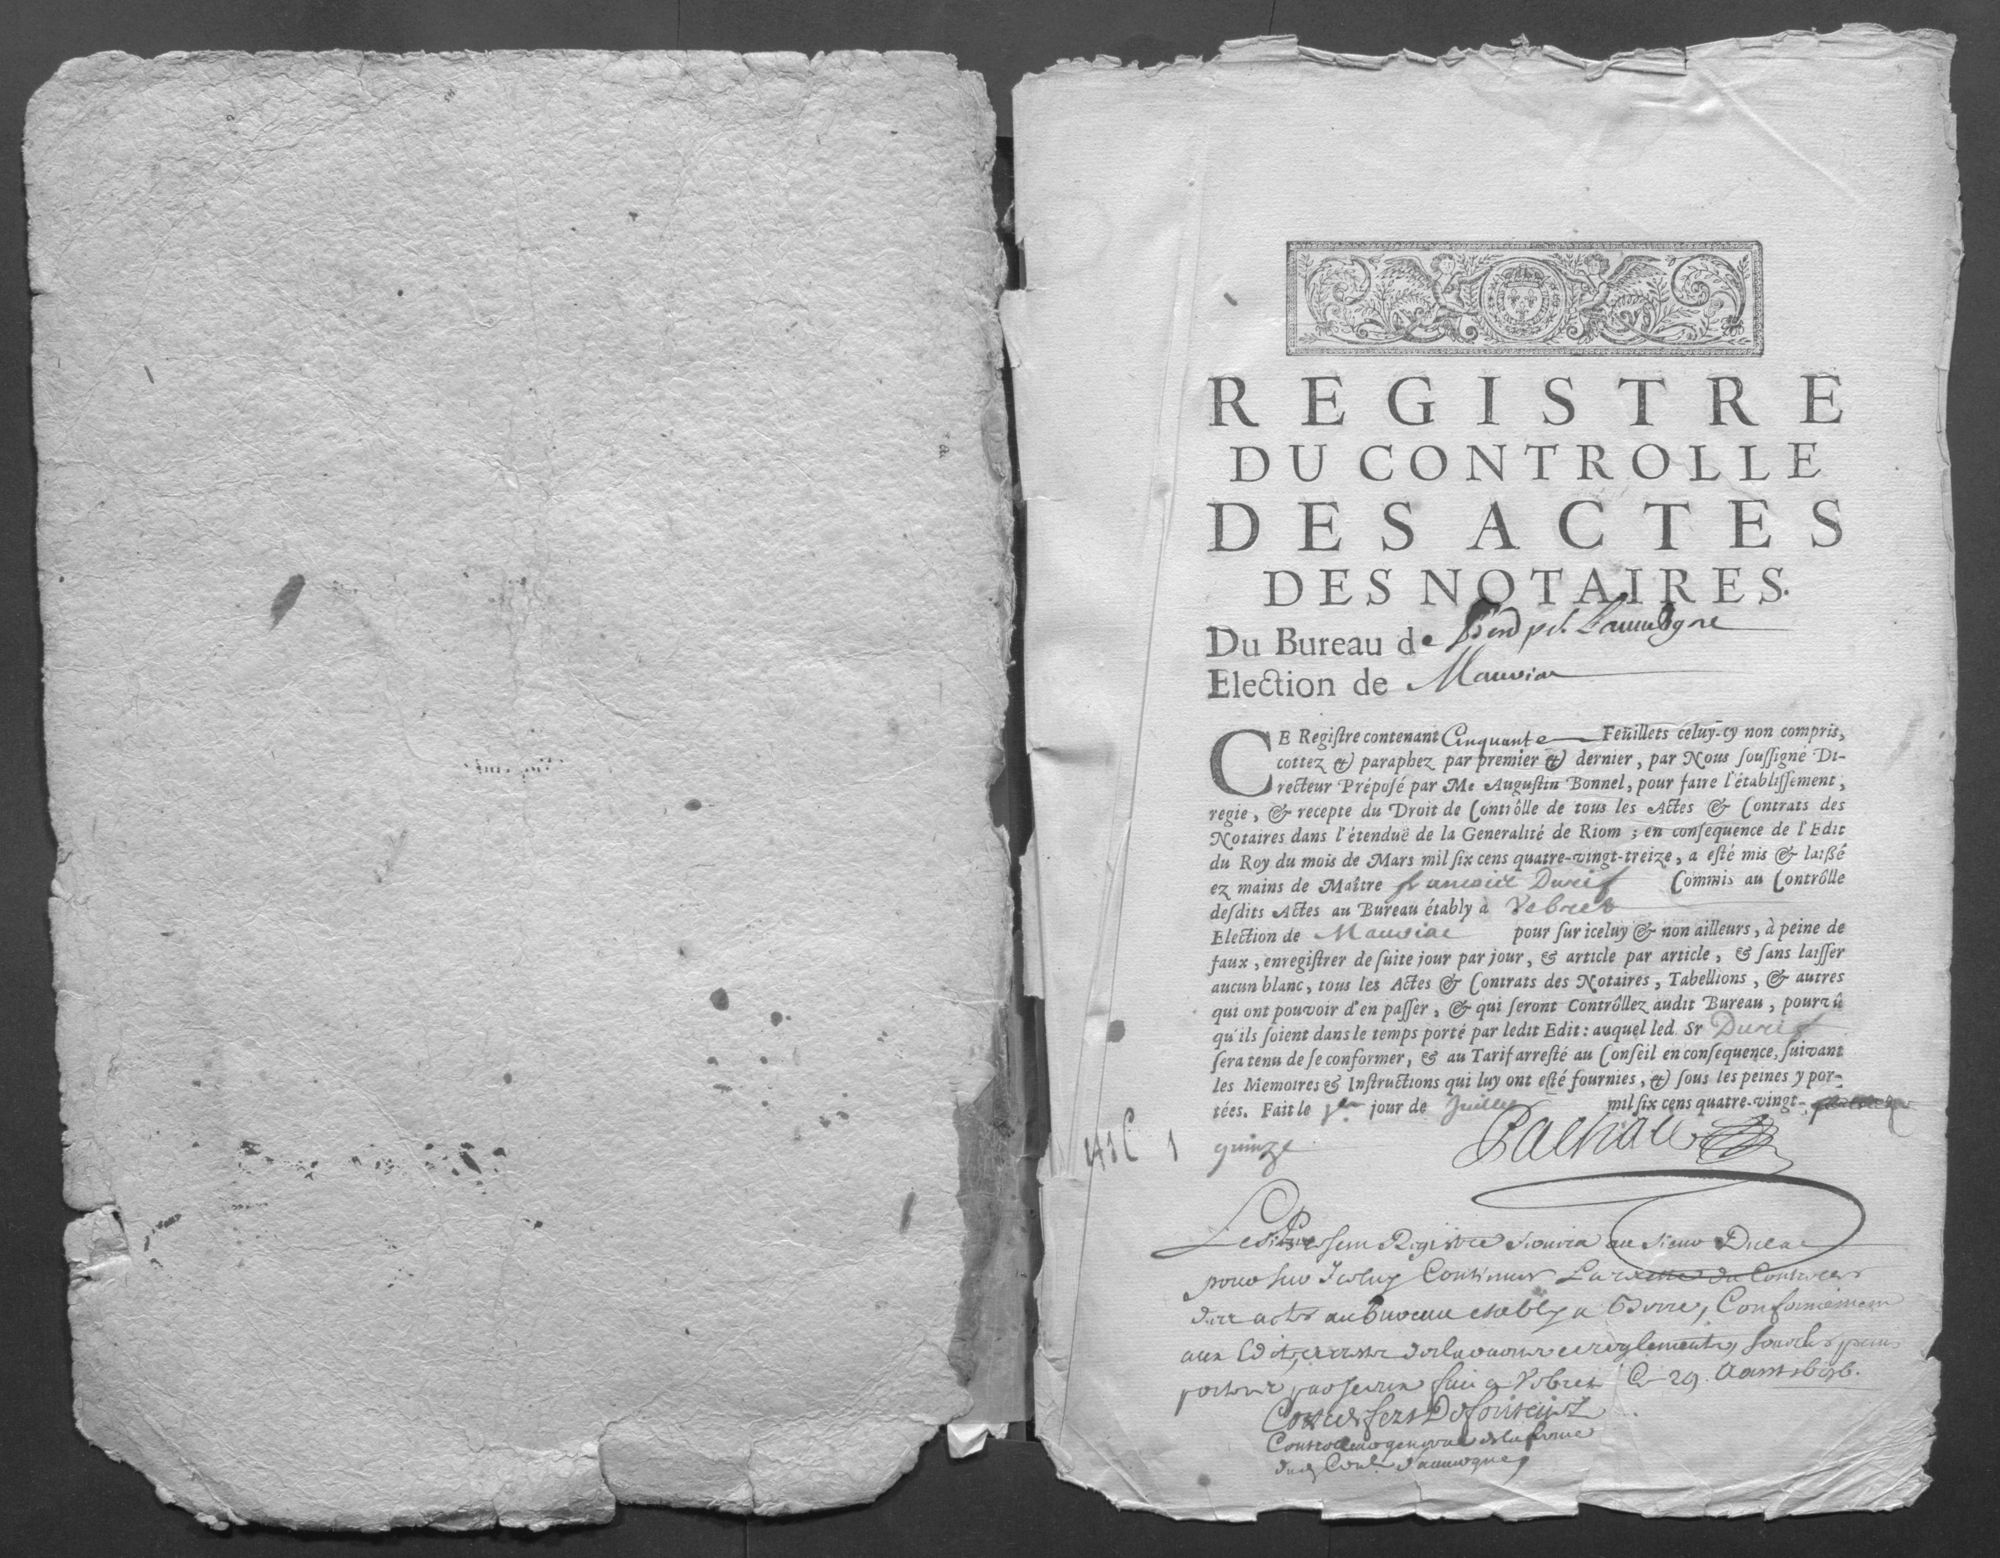 REGISTRE
DU CONTROLLE
DES ACTES
DES NOTAIRES.
Du Bureau de
Election de Mauriac
CE Registre contenant Cinquante Feüillets celuy-cy non compris,
cottez & paraphez par premier & dernier, par Nous soussigné Di-
recteur Préposé par Me Augustin Bonnel, pour faire l'établissement,
regie, & recepte du Droit de Contrôlle de tous les Actes & Contrats des
Notaires dans l'étenduë de la Generalité de Riom ; en consequence de l'Edit
du Roy du mois de Mars mil six cens quatre-vingt-treize, a esté mis & laissé
ez mains de Maître francois Durif Commis au Contrôlle
desdits Actes au Bureau étably à Vebret
Election de Mauriac pour sur iceluy & non ailleurs, à peine de
faux, enregistrer de suite jour par jour, & article par article, & sans laisser
aucun blanc, tous les Actes & Contrats des Notaires, Tabellions, & autres
qui ont pouvoir d'en passer, & qui seront Contrôllez audit Bureau, pourvû
qu'ils soient dans le temps porté par ledit Edit : auquel led. Sr Durif
sera tenu de se conformer, & au Tarif arresté au Conseil en consequence, suivant
les Memoires & Instructions qui luy ont esté fournies, & sous les peines y por-
tées. Fait le 1er jour de Juillet mil six cens quatre-vingt-
quinze
Le present Registre au sieur
pour sur Iceluy Continuer la recette du Controlle
des actes au Bureau estably a Conformement
aux Edits, et reglements,
fait a Vebret Ce 29